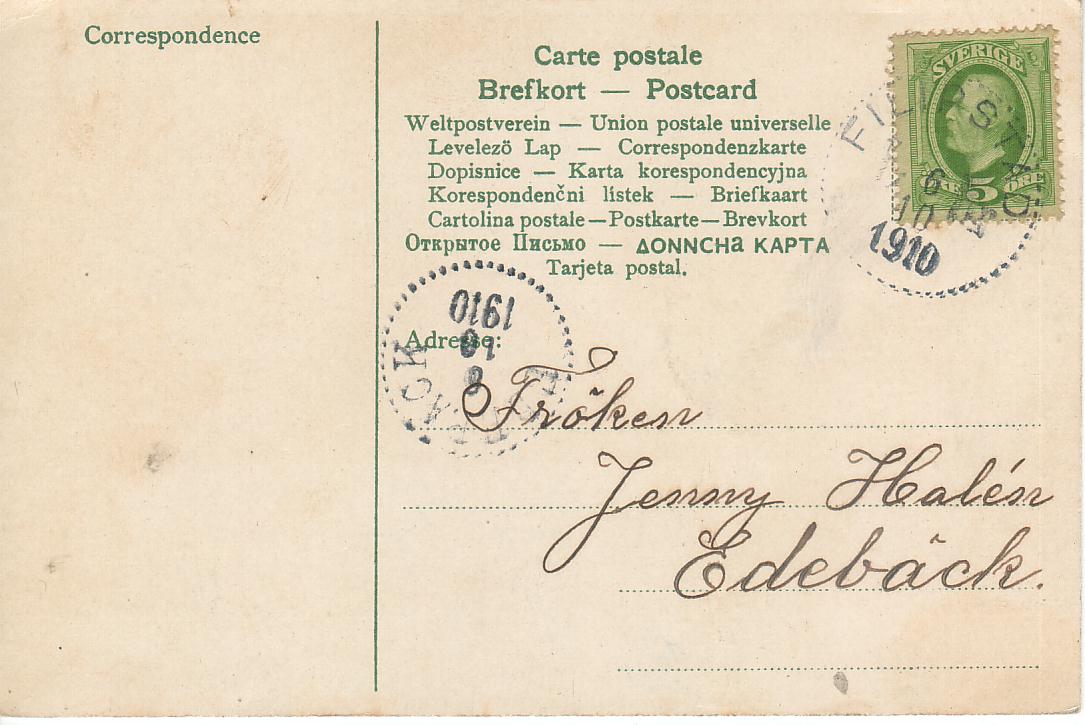 Correspondence
Carte postale
Brefkort — Postcard
Weltpostverein — Union postale universelle
Levelezö Lap — Correspondenzkarte
Dopisnice — Karta korespondencyjna
Korespondenčni lístek — Briefkaart
Cartolina postale — Postkarte — Brevkort
Открытое Письмо — ΔONNCHa KAPTA
Tarjeta postal.
SVERIGE
5 ÖRE
FILIPSTAD
6
10
1910
1910
10
8
Adresse:
Fröken
Jenny Halén
Edebäck.